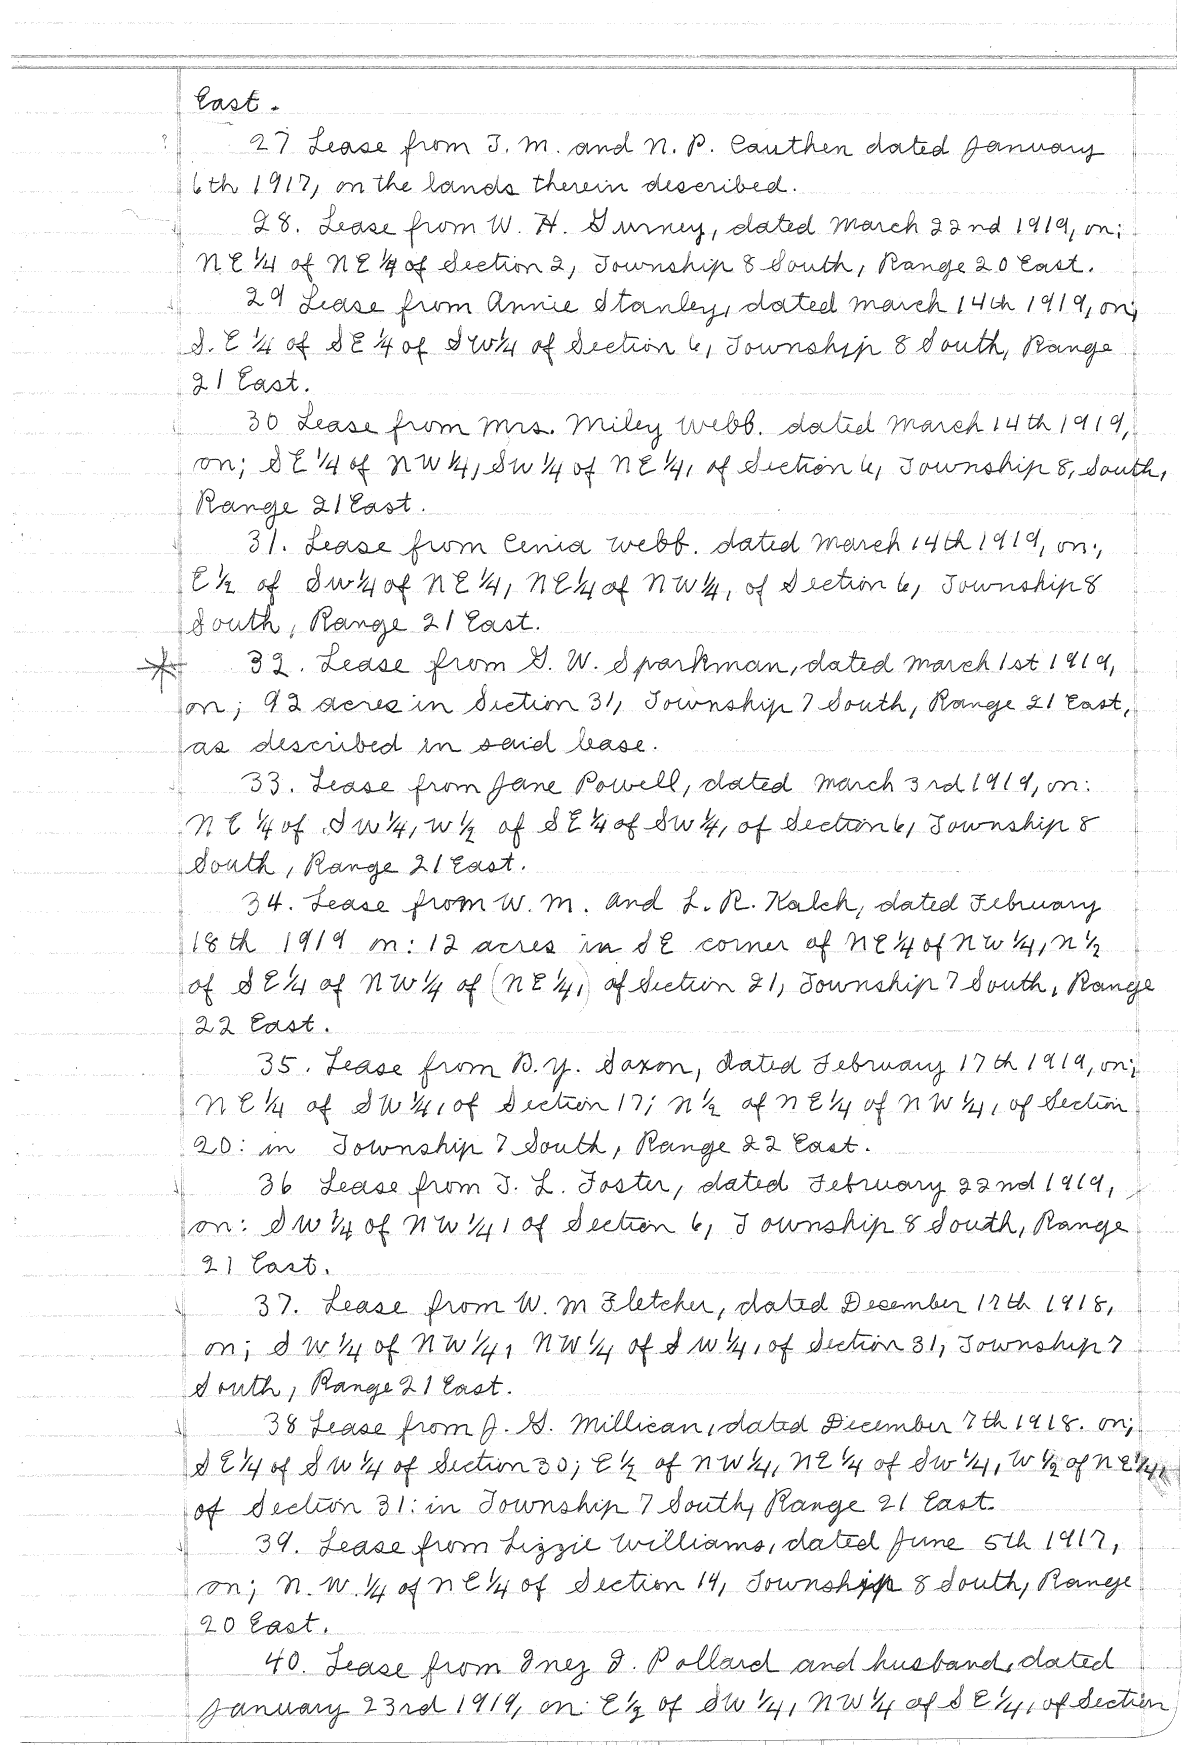 East.
27 Lease from J. M. and N. P. Cauthen dated January
6th 1917, on the lands therein described.
28. Lease from W. H. Gurney, dated March 22nd 1919, on;
NE 1/4 of NE 1/4 of Section 2, Township 8 South, Range 20 East.
29 Lease from Annie Stanley, dated March 14th 1919, on;
S.E 1/4 of SE 1/4 of SW 1/4 of Section 6, Township 8 South, Range
21 East.
30 Lease from Mrs. Miley Webb. dated March 14th 1919,
on; SE 1/4 of NW 1/4, SW 1/4 of NE 1/4, of Section 6, Township 8, South,
Range 21 East.
31. Lease from Cenia Webb. dated March 14th 1919, on;
E 1/2 of SW 1/4 of NE 1/4, NE 1/4 of NW 1/4, of Section 6, Township 8
South, Range 21 East.
32. Lease from G. W. Sparkman, dated March 1st 1919,
on; 92 acres in Section 31, Township 7 South, Range 21 East,
as described in said lease.
33. Lease from Jane Powell, dated March 3rd 1919, on:
NE 1/4 of SW 1/4, W 1/2 of SE 1/4 of SW 1/4, of Section 6, Township 8
South, Range 21 East.
34. Lease from W. M. and L. R. Kalch, dated February
18th 1919 on: 12 acres in SE corner of NE 1/4 of NW 1/4, N 1/2
of SE 1/4 of NW 1/4 of (NE 1/4,) of Section 21, Township 7 South, Range
22 East.
35. Lease from B. Y. Saxon, dated February 17th 1919, on;
NE 1/4 of SW 1/4, of Section 17; N 1/2 of NE 1/4 of NW 1/4, of Section
20: in Township 7 South, Range 22 East.
36 Lease from J. L. Foster, dated February 22nd 1919,
on: SW 1/4 of NW 1/4, of Section 6, Township 8 South, Range
21 East.
37. Lease from W. M Fletcher, dated December 17th 1918,
on; SW 1/4 of NW 1/4, NW 1/4 of SW 1/4, of Section 31, Township 7
South, Range 21 East.
38 Lease from J. G. Millican, dated December 7th 1918. on;
SE 1/4 of SW 1/4 of Section 30; E 1/2 of NW 1/4, NE 1/4 of SW 1/4, W 1/2 of NE 1/4,
of Section 31: in Township 7 South, Range 21 East.
39. Lease from Lizzie Williams, dated June 5th 1917,
on; N.W. 1/4 of NE 1/4 of Section 14, Township 8 South, Range
20 East.
40. Lease from Inez I. Pollard and husband, dated
January 23rd 1919, on: E 1/2 of SW 1/4, NW 1/4 of SE 1/4, of Section